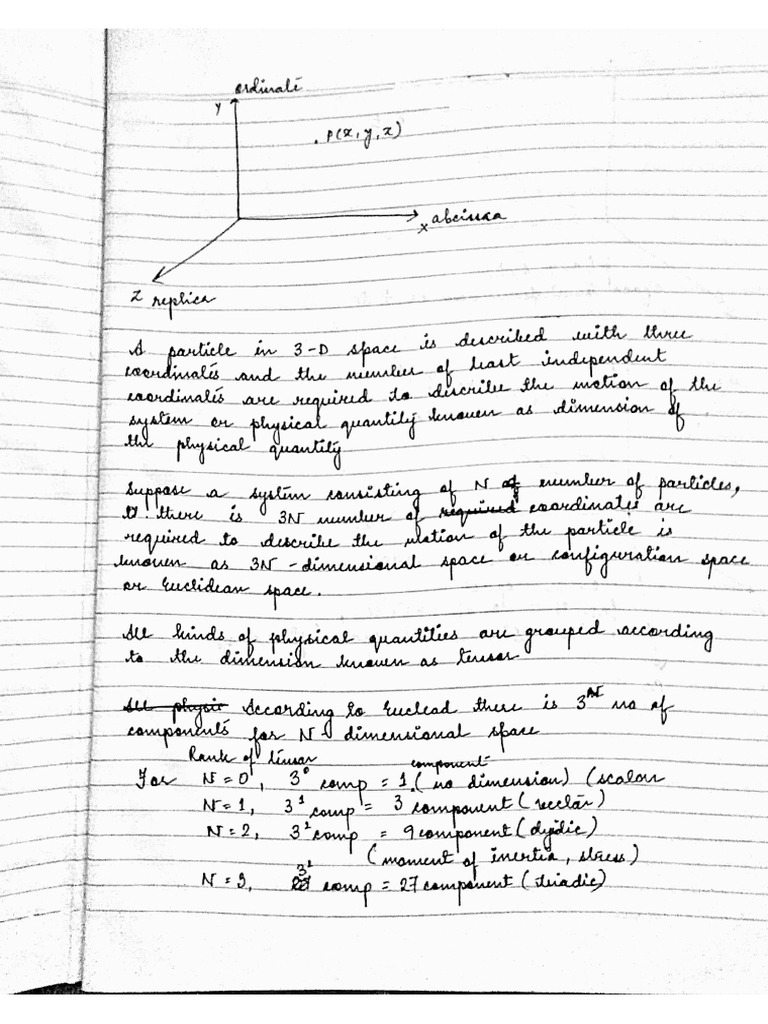 ordinate
y
. P(x, y, z)
x abcissa
z replica
A particle in 3-D space is described with three
coordinates and the number of least independent
coordinates are required to describe the motion of the
system or physical quantity known as dimension of
the physical quantity
Suppose a system consisting of N of number of particles,
there is 3N number of required coordinates are
required to describe the motion of the particle is
known as 3N-dimensional space or configuration space
or Euclidean space.
All kinds of physical quantities are grouped according
to the dimension known as tensor
All physic According to Euclead there is 3^N no of
components for N-dimensional space
Rank of tensor component
For N=0, 3^0 comp = 1 (no dimension) (scalar
N=1, 3^1 comp = 3 component (vector)
N=2, 3^2 comp = 9 component (dyidic)
(moment of inertia, stress)
N=3, 3^3 comp = 27 component (triadic)